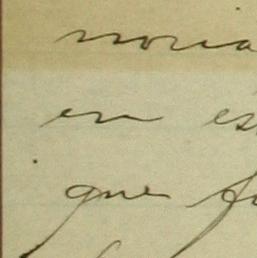 moria
en es
que fu